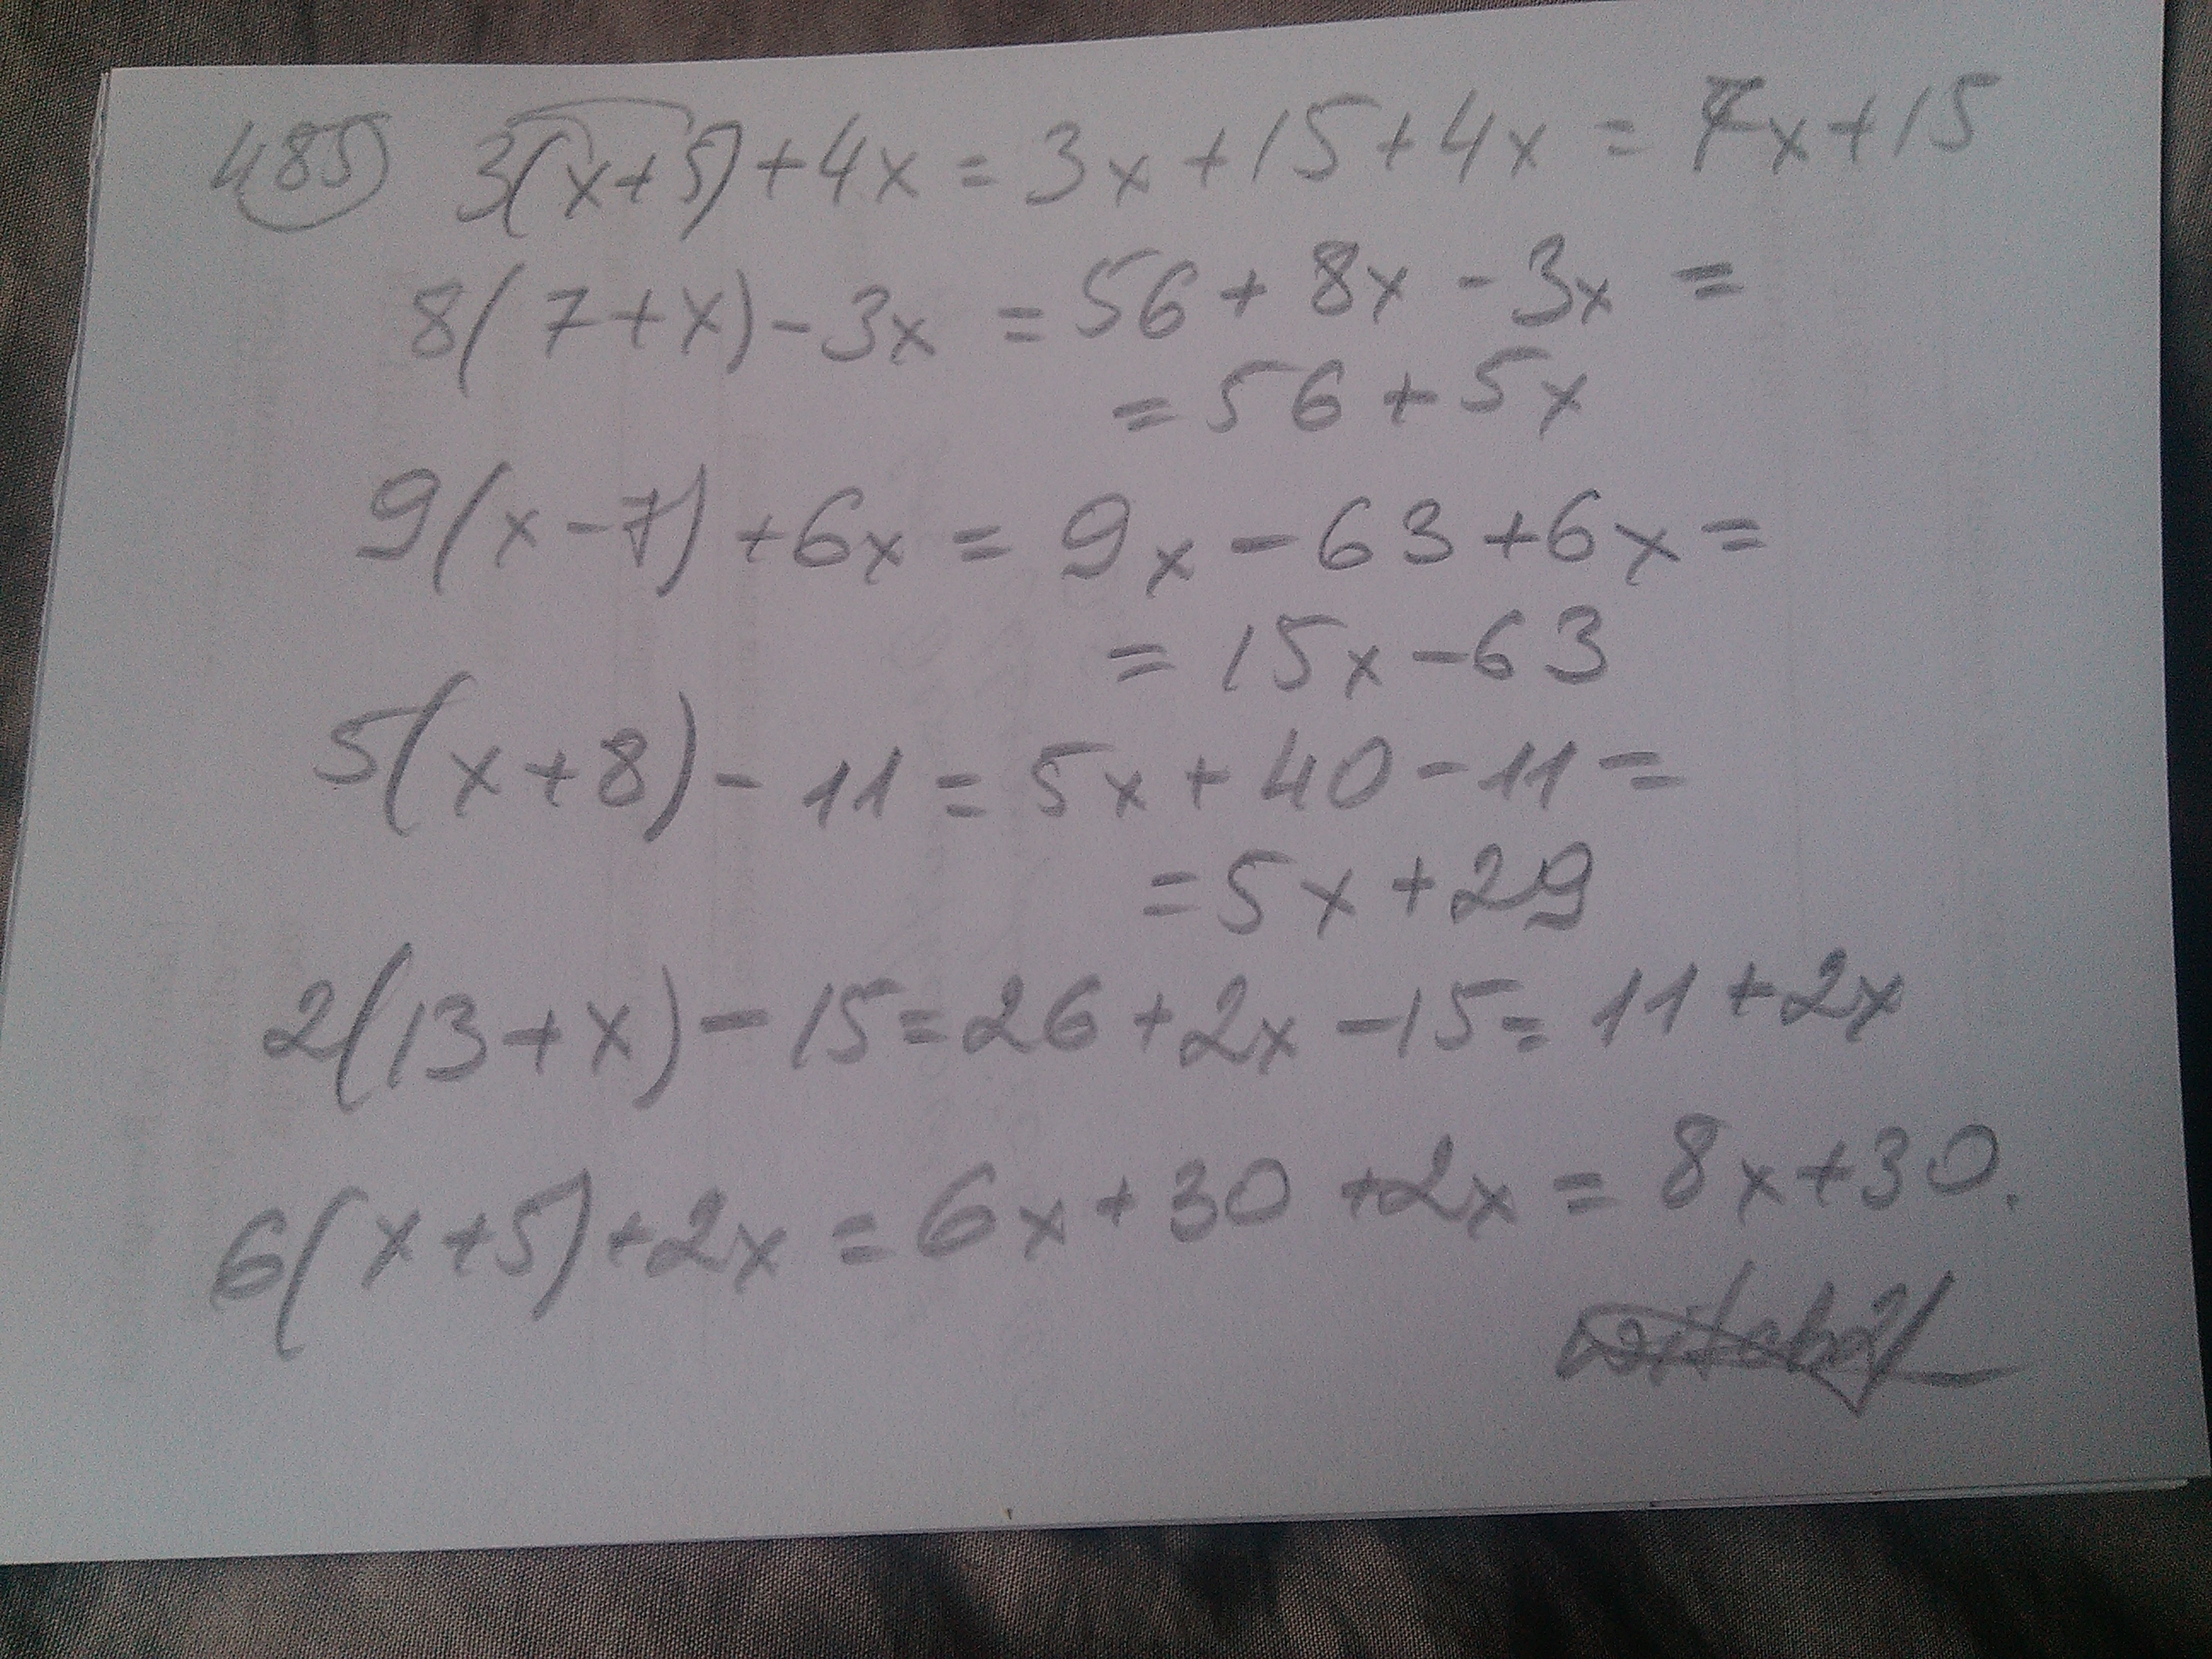 485 3(x+5)+4x = 3x+15+4x = 7x+15
8(7+x)-3x = 56+8x-3x =
= 56+5x
9(x-7)+6x = 9x-63+6x =
= 15x-63
5(x+8)-11 = 5x+40-11 =
= 5x+29
2(13+x)-15=26+2x-15= 11+2x
6(x+5)+2x = 6x+30+2x = 8x+30.